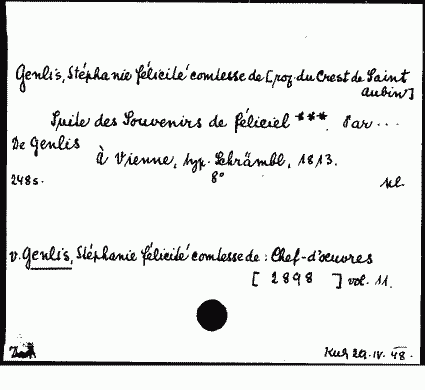 Genlis, Stéphanie félicité comtesse de [roz. du Crest de Saint
aubin]
Suite des Souvenirs de féliciel ***. Par ...
De Genlis
À Vienne, typ. Schrämbl, 1813.
248s. 8° kl.
v. Genlis, Stéphanie félicité comtesse de: Chef-d'oeuvres
[ 2898 ] vol. 11.
29.IV.48.